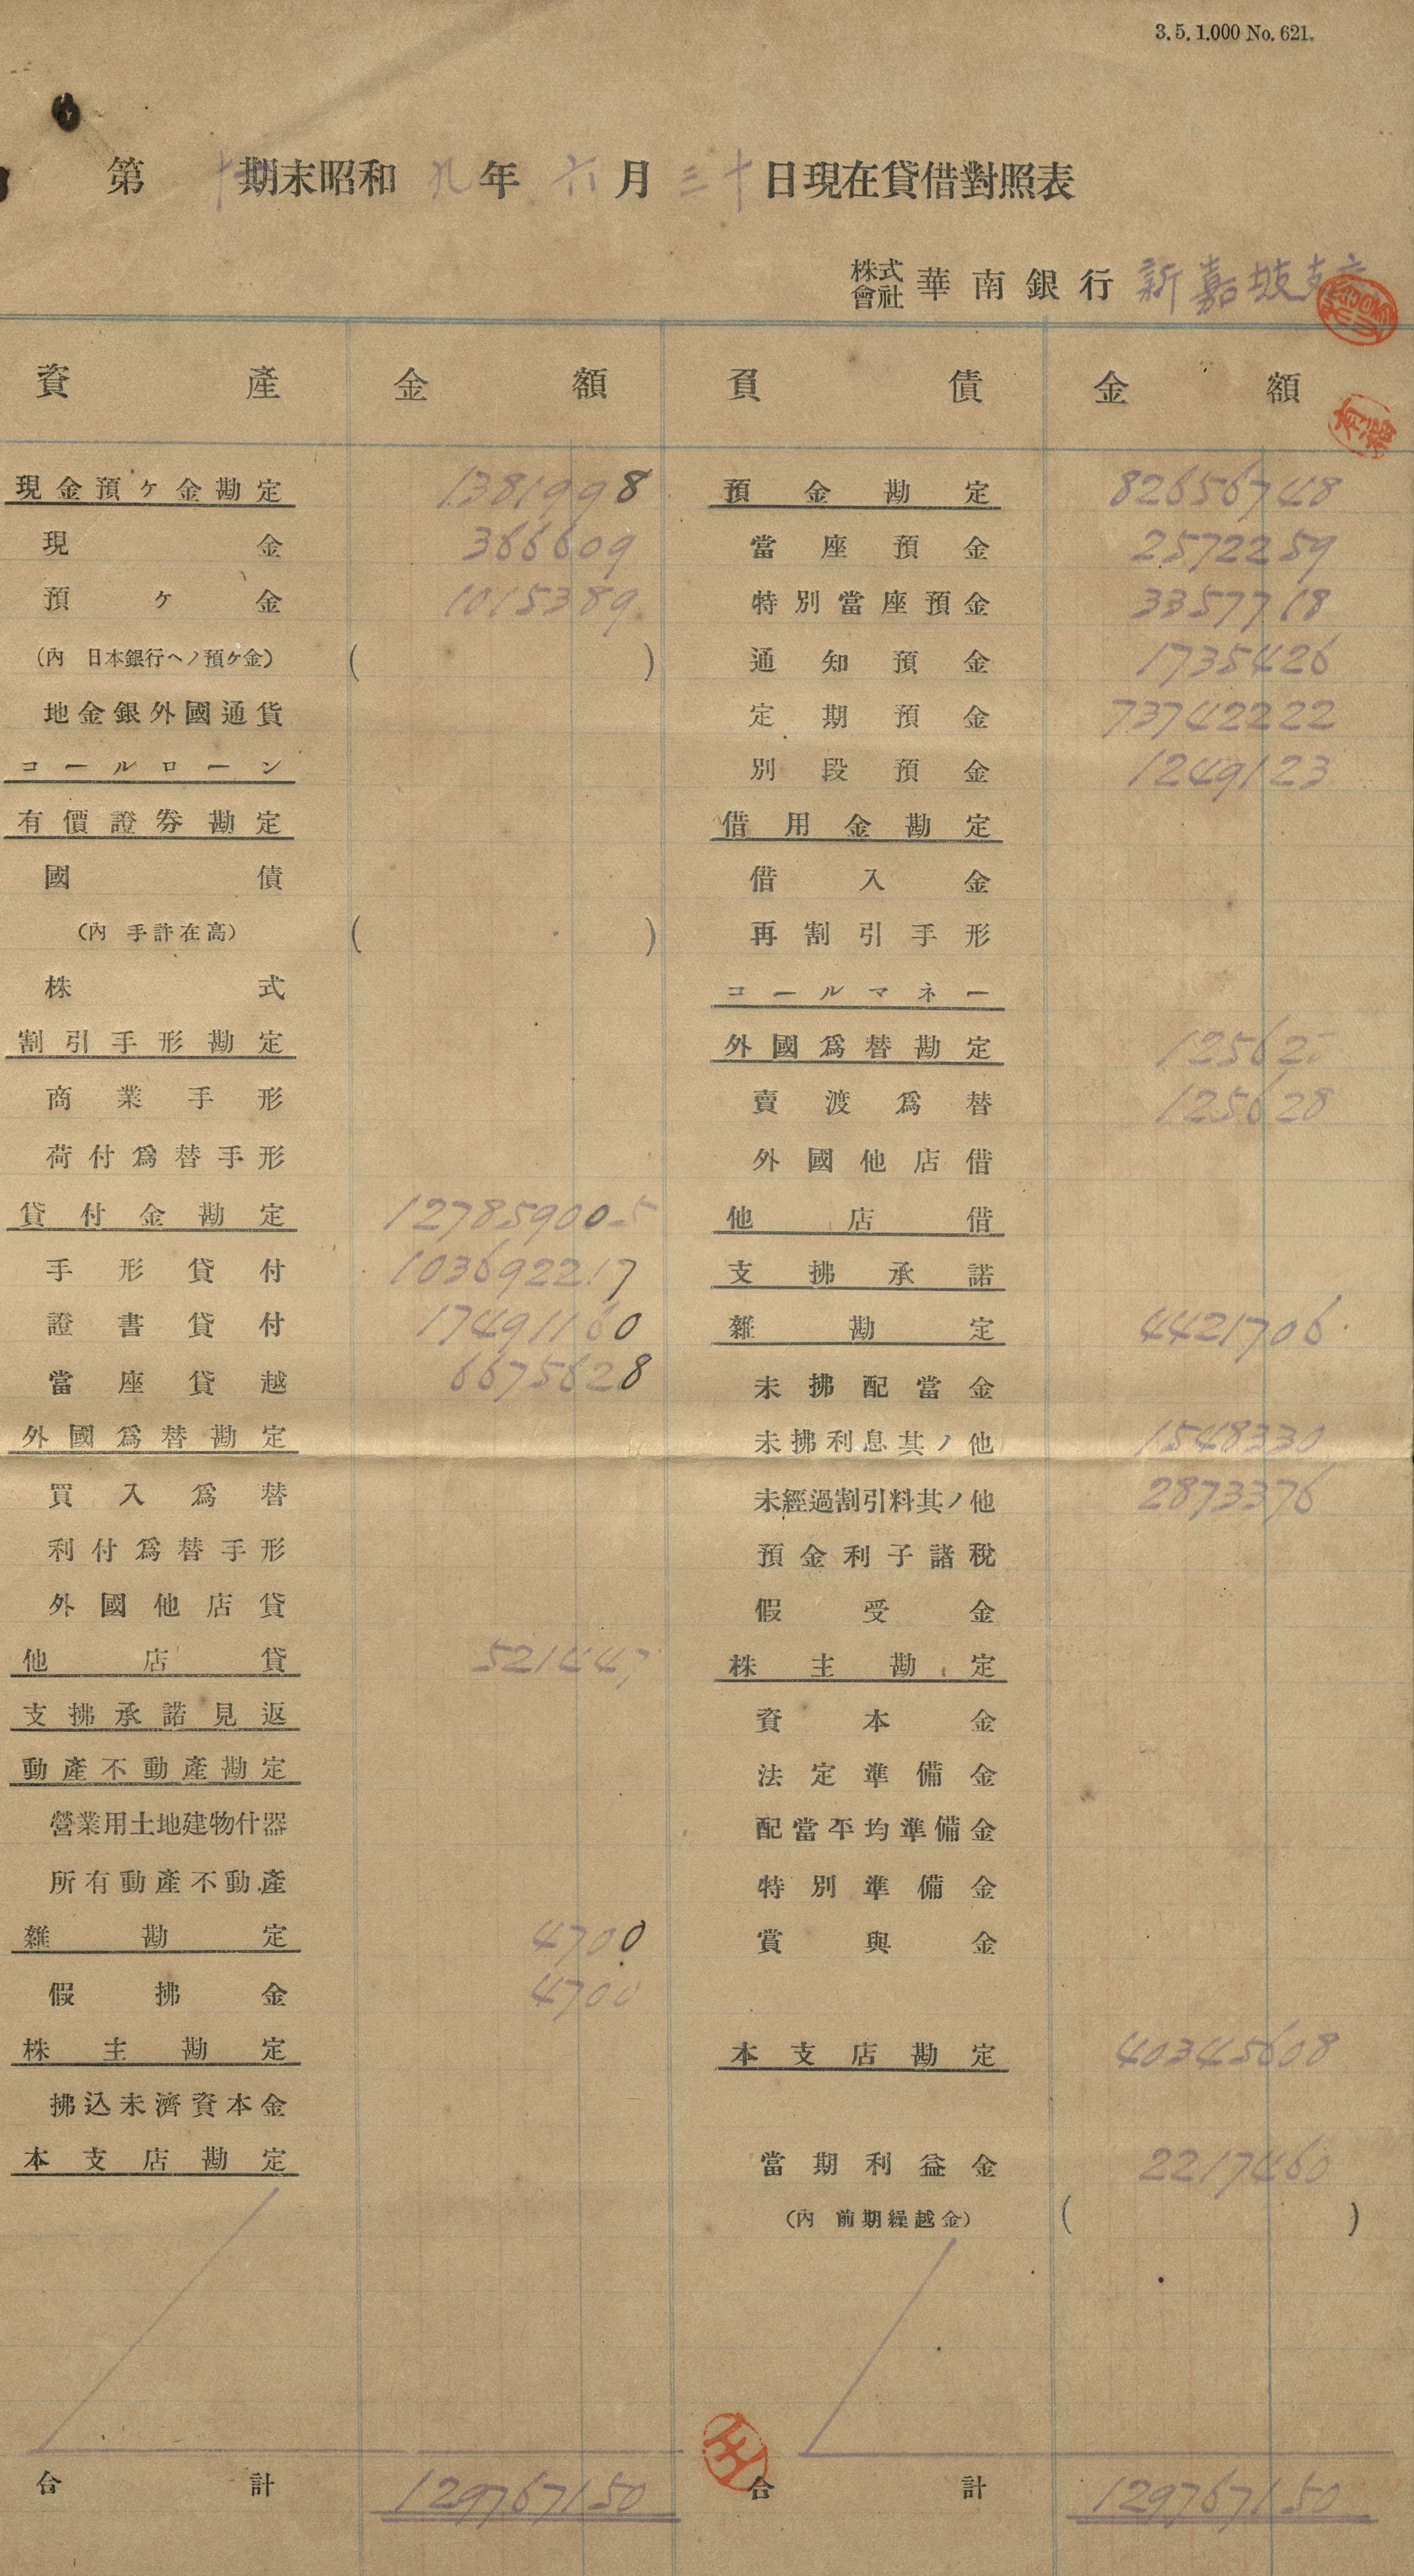 3.5.1.000 No.621.
第 期末昭和九年六月三十日現在貸借對照表
株式會社 華南銀行 新嘉坡支店
資產 金額 負債 金額
現金預ケ金勘定 1381998 預金勘定 82656748
現金 366609 當座預金 2572259
預ケ金 1015389 特別當座預金 3357718
(內 日本銀行ヘノ預ケ金) ( ) 通知預金 1735426
地金銀外國通貨 定期預金 73742222
コールローン 別段預金 1249123
有價證券勘定 借用金勘定
國債 借入金
(內 手許在高) ( ) 再割引手形
株式 コールマネー
割引手形勘定 外國爲替勘定 125628
商業手形 賣渡爲替 125628
荷付爲替手形 外國他店借
貸付金勘定 127859005 他店借
手形貸付 103692217 支拂承諾
證書貸付 17491160 雜勘定 4421706
當座貸越 6675628 未拂配當金
外國爲替勘定 未拂利息其ノ他 1548330
買入爲替 未經過割引料其ノ他 2873376
利付爲替手形 預金利子諸稅
外國他店貸 假受金
他店貸 521447 株主勘定
支拂承諾見返 資本金
動產不動產勘定 法定準備金
營業用土地建物什器 配當平均準備金
所有動產不動產 特別準備金
雜勘定 4700 賞與金
假拂金 4700
株主勘定 本支店勘定 40345608
拂込未濟資本金
本支店勘定 當期利益金 2217460
(內 前期繰越金) ( )
合計 129767150 合計 129767150